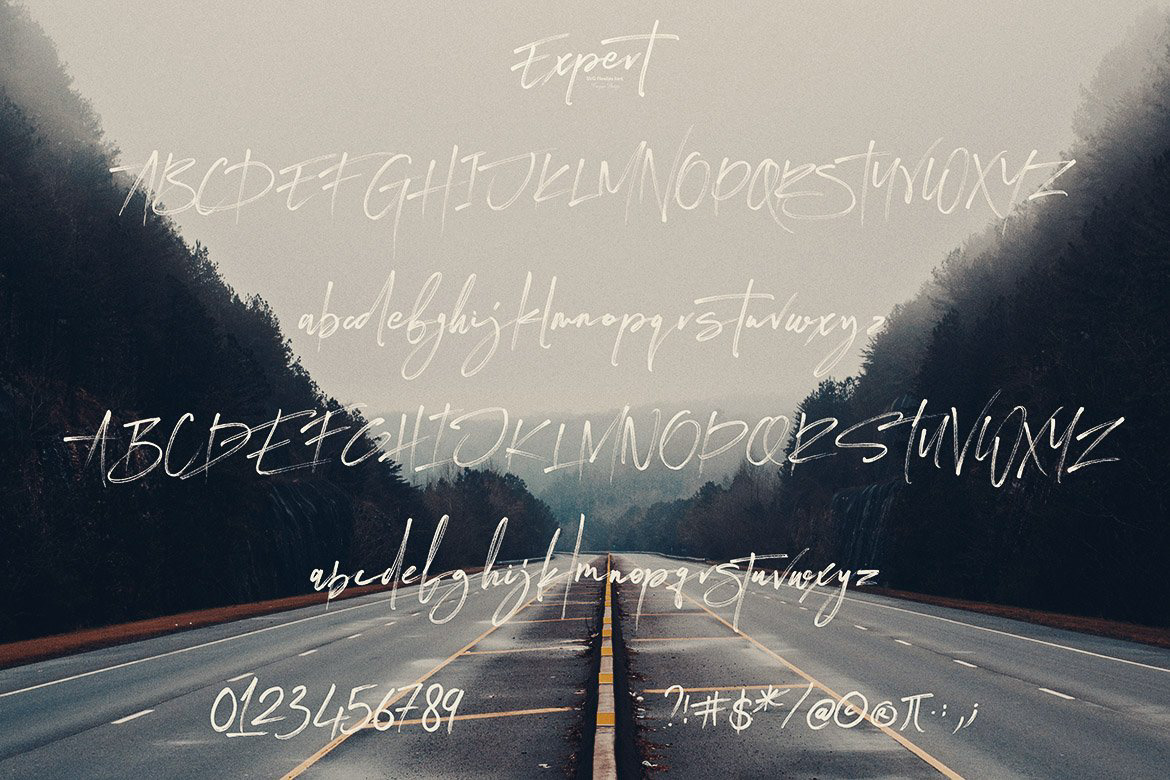 Expert
SVG Freestyle Font
ABCDEFGHIJKLMNOPQRSTUVWXYZ
abcdefghijklmnopqrstuvwxyz
ABCDEFGHIJKLMNOPQRSTUVWXYZ
abcdefghijklmnopqrstuvwxyz
0123456789 ?!#$*/@©®π.:,;